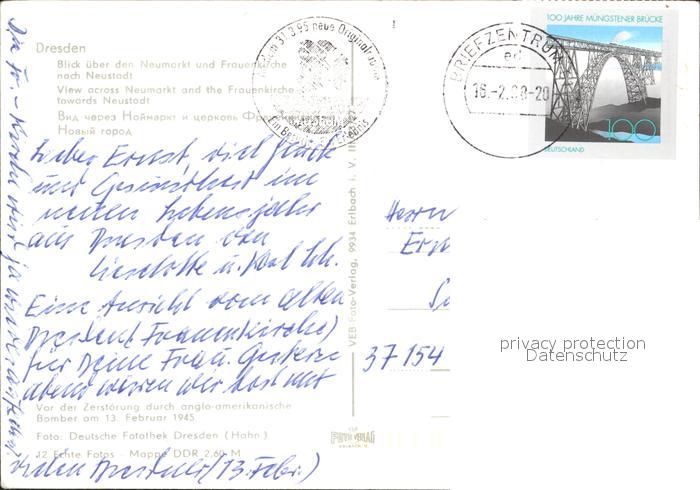 Dresden
Blick über den Neumarkt und Frauenkirche
nach Neustadt
View across Neumarkt and the Frauenkirche
towards Neustadt
Вид через Ноймаркт и церковь
Новый город
Lieber Ernst, viel Glück
und Gesundheit im
neuen Lebensjahr
aus Dresden von
Lieselotte u.
Eine Ansicht vom alten
Dresden (Frauenkirche)
für Deine Frau. Gestern
abend waren wir dort mit
vielen Dresdner (13. Febr.)
Die Fr.-Kirche wird ja
Vor der Zerstörung durch anglo-amerikanische
Bomber am 13. Februar 1945
Foto: Deutsche Fotothek Dresden (Hahn)
12 Echte Fotos - Mappe DDR 2,60 M
VEB Foto-Verlag, 9934 Erlbach i. V.
31.3.95 neue Original
BRIEFZENTRUM
16.-2.98-20
100 JAHRE MÜNGSTENER BRÜCKE
100
DEUTSCHLAND
Herrn
37154
privacy protection
Datenschutz